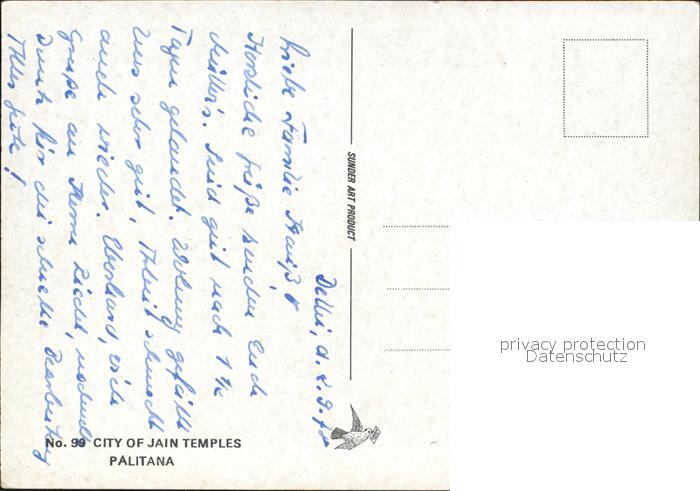 Delhi, d. 2.9.78
Liebe Familie
Herzliche Grüße senden Euch
Sind gut nach 1 ½
Tagen gelandet. Wohnung gefällt
uns sehr gut, Arbeit schmeckt
auch wieder. Eberhard, viele
Grüße an Herrn Riedel, nochmals
Dank für die schnelle Bearbeitung
Alles Gute!
SUNDER ART PRODUCT
No. 99 CITY OF JAIN TEMPLES
PALITANA
privacy protection
Datenschutz